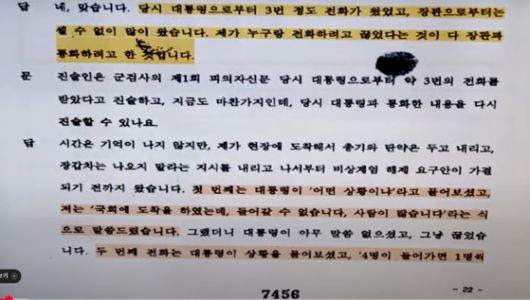 답 네, 맞습니다. 당시 대통령으로부터 3번 정도 전화가 왔었고, 장관으로부터는
셀 수 없이 많이 왔습니다. 제가 누구랑 전화하려고 끊었다는 것이 다 장관과
통화하려고 한 것입니다.
문 진술인은 군검사의 제1회 피의자신문 당시 대통령으로부터 약 3번의 전화를
받았다고 진술하고, 지금도 마찬가지인데, 당시 대통령과 통화한 내용을 다시
진술할 수 있나요.
답 시간은 기억이 나지 않지만, 제가 현장에 도착해서 총기와 탄약은 두고 내리고,
장갑차는 나오지 말라는 지시를 내리고 나서부터 비상계엄 해제 요구안이 가결
되기 전까지 왔습니다. 첫 번째는 대통령이 '어떤 상황이냐'라고 물어보셨고,
저는 '국회에 도착을 하였는데, 들어갈 수 없습니다, 사람이 많습니다'라는 식
으로 말씀드렸습니다. 그랬더니 대통령이 아무 말씀 없으셨고, 그냥 끊었습
니다. 두 번째 전화는 대통령이 상황을 물어보셨고, '4명이 들어가면 1명씩
- 22 -
7456
보기